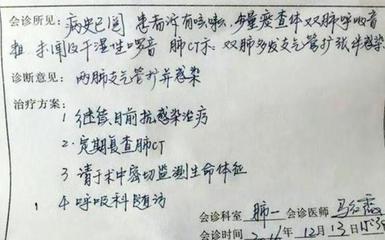 会诊所见：病史已阅 患者近有咳嗽，少量痰 查体 双肺呼吸音
粗 未闻及干湿性啰音 肺CT示：双肺多发支气管扩张伴感染
诊断意见：两肺支气管扩张并感染
治疗方案：1 继续目前抗感染治疗
2 定期复查肺CT
3 请于术中密切监测生命体征
4 呼吸科随访
会诊科室 肺一 会诊医师
会诊时间 年 12 月 13 日